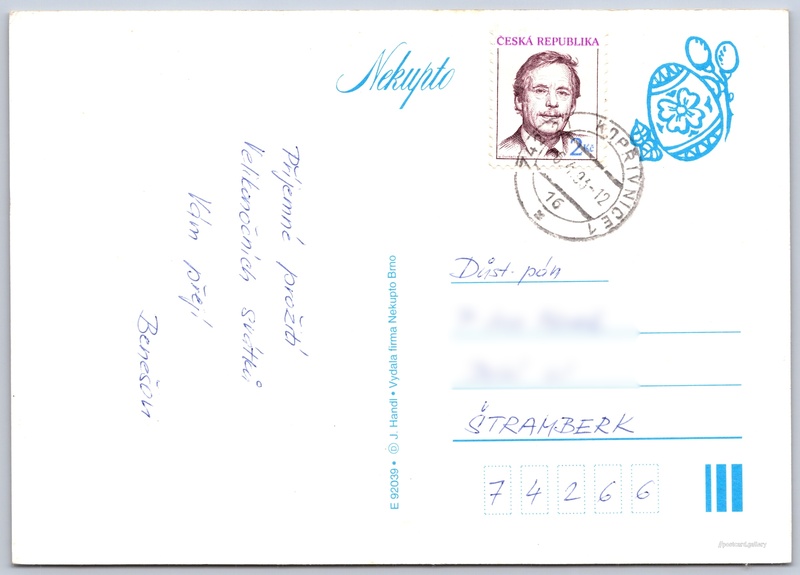 Nekupto
ČESKÁ REPUBLIKA
2 Kč
KOPŘIVNICE 1
16
Příjemné prožití
Velikonočních svátků
Vám přejí
Benešovi
E 92039 • Ⓓ J. Handl • Vydala firma Nekupto Brno
Důst. pán
ŠTRAMBERK
7 4 2 6 6
@postcard.gallery